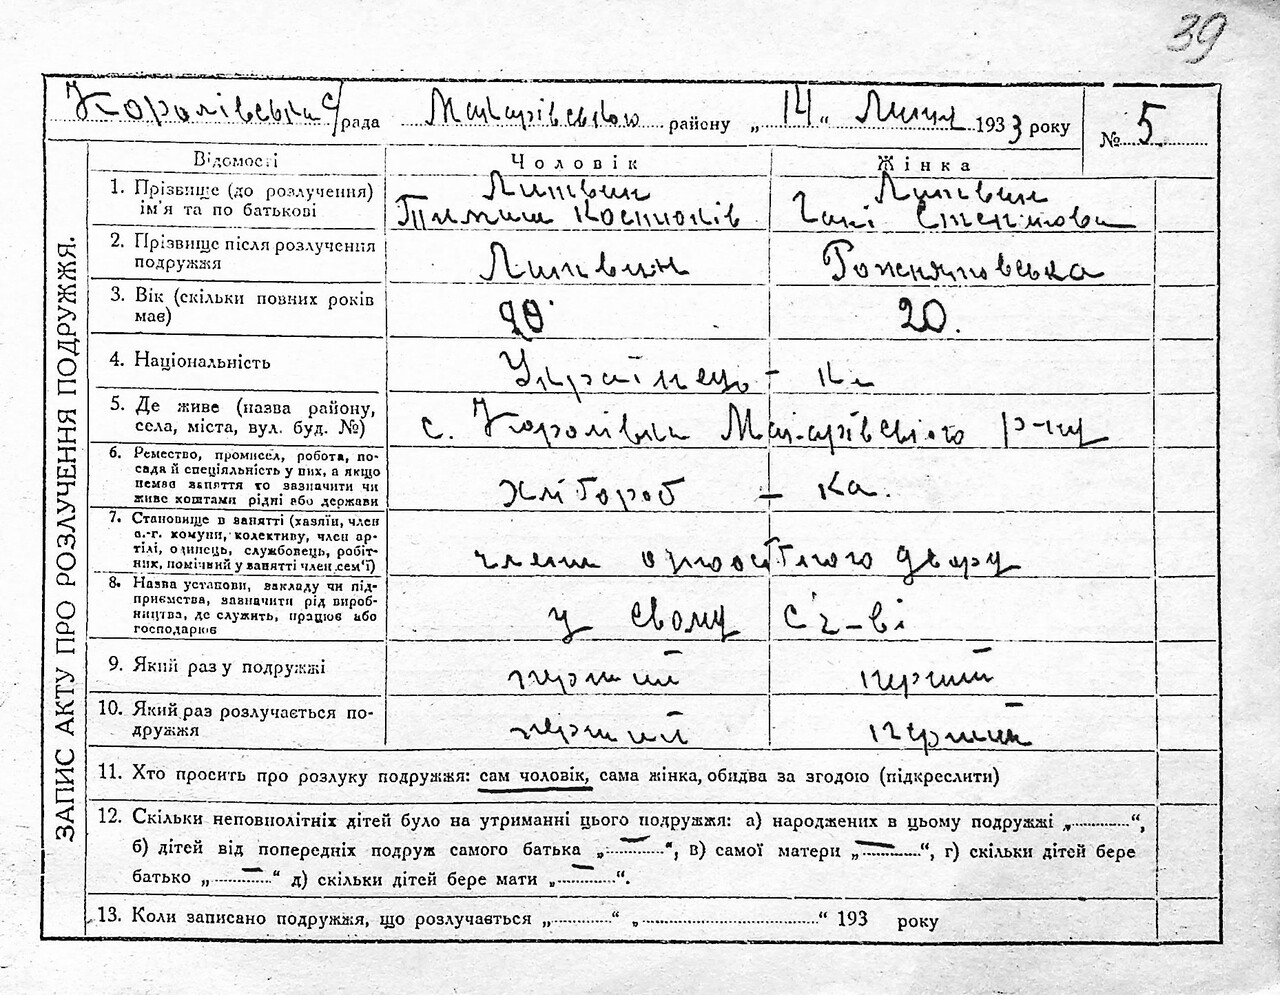 39
Королівська с/рада Макарівського району „14“ Липня 1933 року № 5
Відомості Чоловік Жінка
1. Прізвище (до розлучення) ім'я та по батькові Литвин Литвин
Тимиш Костюків Степанова
2. Прізвище після розлучення подружжя Литвин Рожнятовська
3. Вік (скільки повних років має) 20 20.
4. Національність Українець – ка
5. Де живе (назва району, села, міста, вул. буд. №) с. Королівка Макарівського р-ну
6. Ремество, промисел, робота, по-
сада й спеціяльність у них, а якщо
нема заняття то зазначити чи
живе коштами рідні або держави хлібороб – ка.
7. Становище в занятті (хазяїн, член
с.-г. комуни, колективу, член ар-
тілі, одинець, службовець, робіт-
ник, помічний у занятті член сем'ї) член одноосібного двору
8. Назва установи, закладу чи під-
приємства, зазначити рід вироб-
ництва, де служить, працює або
господарків у свому
9. Який раз у подружжі перший перший
10. Який раз розлучається по-
дружжя перший перший
11. Хто просить про розлуку подружжя: сам чоловік, сама жінка, обидва за згодою (підкреслити)
12. Скільки неповнолітніх дітей було на утриманні цього подружжя: а) народжених в цьому подружжі „..........“,
б) дітей від попередніх подруж самого батька „—“, в) самої матери „—“, г) скільки дітей бере
батько „—“ д) скільки дітей бере мати „—“.
13. Коли записано подружжя, що розлучається „..........“ „....................“ 193 року
ЗАПИС АКТУ ПРО РОЗЛУЧЕННЯ ПОДРУЖЖЯ.